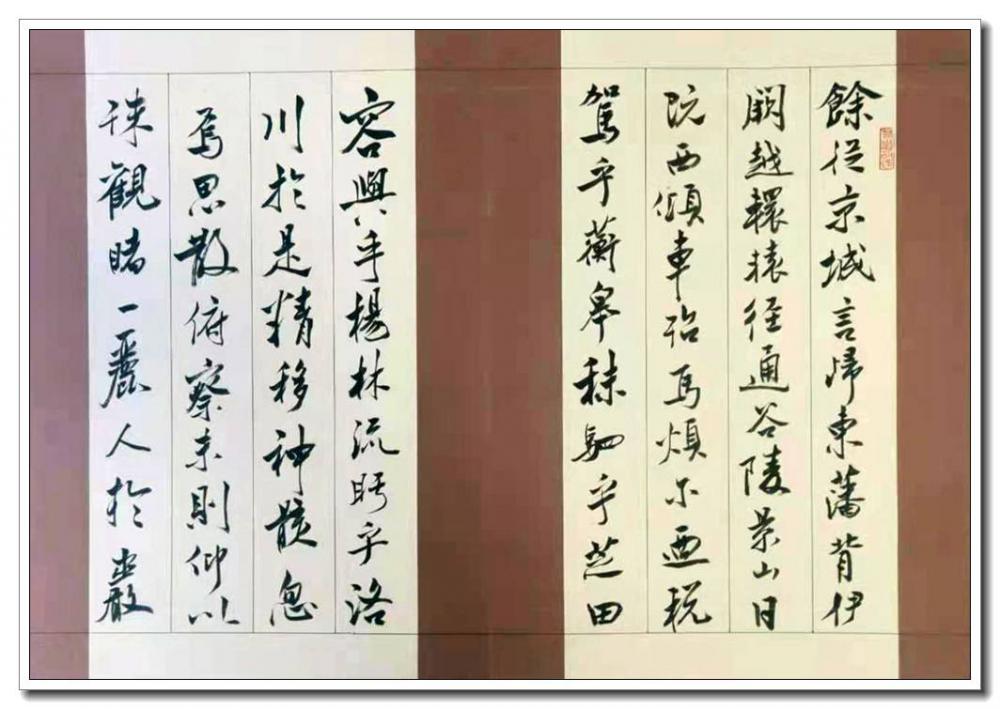 餘從京城言歸東藩背伊
闕越轘轅徑通谷陵景山日
既西傾車殆馬煩尔迺税
駕乎蘅皋秣駟乎芝田
容與乎楊林流眄乎洛
川於是精移神骇忽
焉思散俯察未則仰以
殊觀睹一麗人於巖